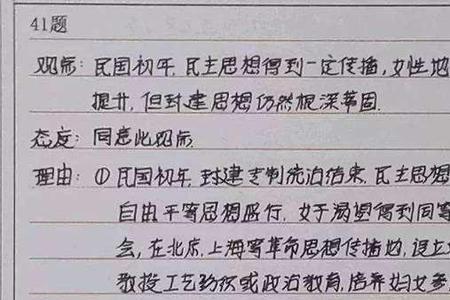 41题
观点：民国初年，民主思想得到一定传播，女性地
提升，但封建思想仍然根深蒂固.
态度：同意此观点.
理由：①民国初年，封建专制统治结束，民主思想
自由平等思想盛行，女子渴望得到同等
会，在北京，上海等革命思想传播地，设立
教授工艺纺织或政治教育，培养妇女参